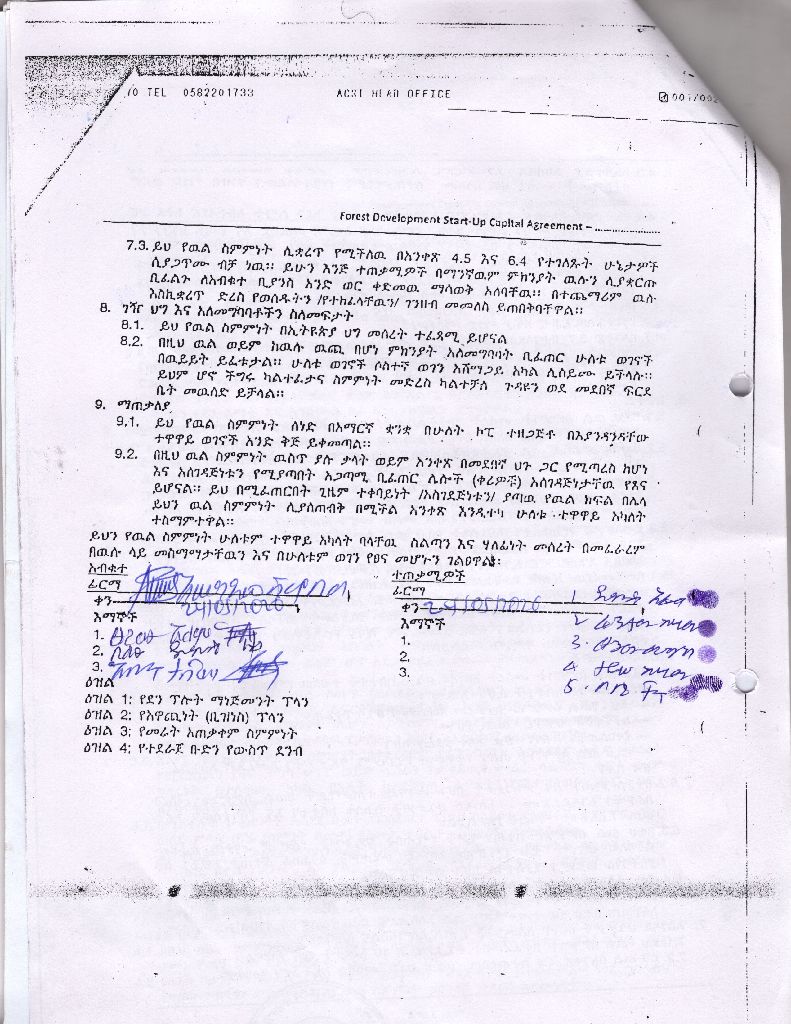 TEL 0582201733 ACSI HEAD OFFICE 001/002
Forest Development Start-Up Capital Agreement – ....................
7.3. ይህ የዉል ስምምነት ሊቋረጥ የሚችለዉ በአንቀጽ 4.5 እና 6.4 የተገለጹት ሁኔታዎች
ሲያጋጥሙ ብቻ ነዉ። ይሁን እንጅ ተጠቃሚዎች በማንኛዉም ምክንያት ዉሉን ሲያቋርጡ
ቢፈልጉ ለአብቁተ ቢያንስ አንድ ወር ቀድመዉ ማሳወቅ አለባቸዉ። በተጨማሪም ዉሉ
እስኪቋረጥ ድረስ የወሰዱትን /የተከፈላቸዉን/ ገንዘብ መመለስ ይጠበቅባቸዋል።
8. ገዥ ህግ እና አለመግባባቶችን ስለመፍታት
8.1. ይህ የዉል ስምምነት በኢትዩጵያ ህግ መሰረት ተፈጻሚ ይሆናል
8.2. በዚህ ዉል ወይም ከዉሉ ዉጪ በሆነ ምክንያት አለመግባባት ቢፈጠር ሁለቱ ወገኖች
በዉይይት ይፈቱታል። ሁለቱ ወገኖች ሶስተኛ ወገን አሸማጋይ አካል ሊሰይሙ ይችላሉ።
ይህም ሆኖ ችግሩ ካልተፈታና ስምምነት መድረስ ካልተቻለ ጉዳዩን ወደ መደበኛ ፍርደ
ቤት መዉሰድ ይቻላል።
9. ማጠቃለያ
9.1. ይህ የዉል ስምምነት ሰነድ በአማርኛ ቋንቋ በሁለት ኮፒ ተዘጋጅቶ በእያንዳንዳቸው
ተዋዋይ ወገኖች አንድ ቅጅ ይቀመጣል።
9.2. በዚህ ዉል ስምምነት ዉስጥ ያሉ ቃላት ወይም አንቀጽ በመደበኛ ህጉ ጋር የሚጣረስ ከሆነ
እና አስገዳጅነቱን የሚያጣበት አጋጣሚ ቢፈጠር ሌሎች (ቀሪዎቹ) አስገዳጅነታቸዉ የጸና
ይሆናል። ይህ በሚፈጠርበት ጊዜም ተቀባይነት /አስገደጅነቱን/ ያጣዉ የዉል ክፍል በሌላ
ይህን ዉል ስምምነት ሊያስጠብቅ በሚችል አንቀጽ እንዲተካ ሁለቱ ተዋዋይ አካለት
ተስማምተዋል።
ይህን የዉል ስምምነት ሁለቱም ተዋዋይ አካላት ባላቸዉ ስልጣን እና ሃላፊነት መሰረት በመፈራረም
በዉሉ ላይ መስማማታቸዉን እና በሁለቱም ወገን የፀና መሆኑን ገልፀዋል፡
አብቁተ ተጠቃሚዎች
ፊርማ ፊርማ
ቀን ቀን
እማኞች እማኞች
1. 1.
2. 2.
3. 3.
ዕዝል
ዕዝል 1: የደን ፕሎት ማነጅመንት ፕላን
ዕዝል 2: የአዋጪነት (ቢዝነስ) ፕላን
ዕዝል 3: የመሬት አጠቃቀም ስምምነት
ዕዝል 4: የተደራጀ ቡድን የውስጥ ደንብ